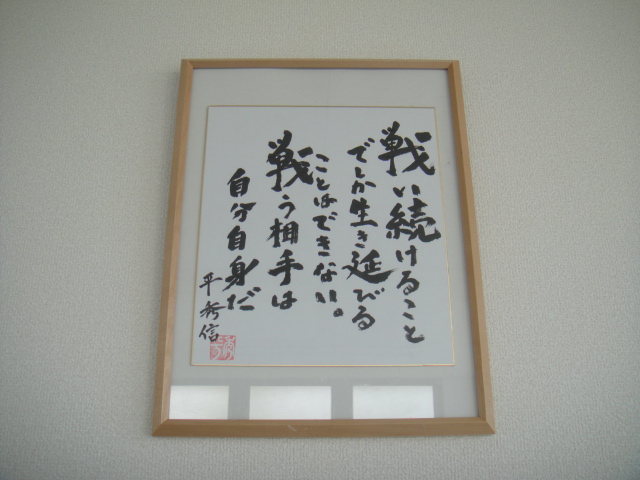 戦い続けること
でしか生き延びる
ことはできない。
戦う相手は
自分自身だ
平秀信